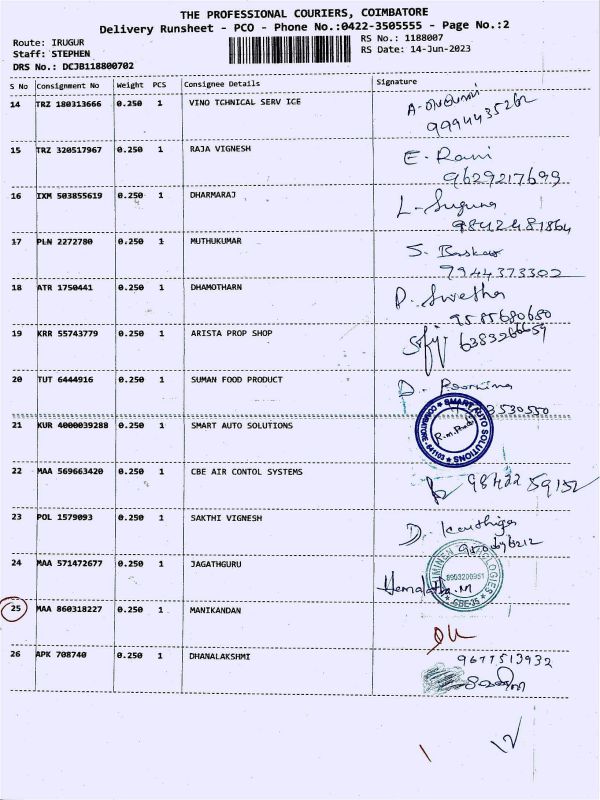 THE PROFESSIONAL COURIERS, COIMBATORE
Delivery Runsheet - PCO - Phone No.:0422-3505555 - Page No.:2
Route: IRUGUR RS No.: 1188007
Staff: STEPHEN RS Date: 14-Jun-2023
DRS No.: DCJB118800702
S No Consignment No Weight PCS Consignee Details Signature
14 TRZ 180313666 0.250 1 VINO TCHNICAL SERV ICE
9994435262
15 TRZ 320517967 0.250 1 RAJA VIGNESH E. Rani
9629217699
16 IXM 503855619 0.250 1 DHARMARAJ L. Suguna
9842481864
17 PLN 2272780 0.250 1 MUTHUKUMAR S. Baskar
7944373302
18 ATR 1750441 0.250 1 DHAMOTHARN P. Swetha
9585680680
19 KRR 55743779 0.250 1 ARISTA PROP SHOP 6383266659
20 TUT 6444916 0.250 1 SUMAN FOOD PRODUCT D. Poornima
3530550
21 KUR 4000039288 0.250 1 SMART AUTO SOLUTIONS SMART AUTO SOLUTIONS
COIMBATORE - 641103
22 MAA 569663420 0.250 1 CBE AIR CONTOL SYSTEMS 98422 59152
23 POL 1579093 0.250 1 SAKTHI VIGNESH D. Karthiga
24 MAA 571472677 0.250 1 JAGATHGURU Hemalatha.M
8903200951
25 MAA 860318227 0.250 1 MANIKANDAN
26 APK 708740 0.250 1 DHANALAKSHMI 9677513932